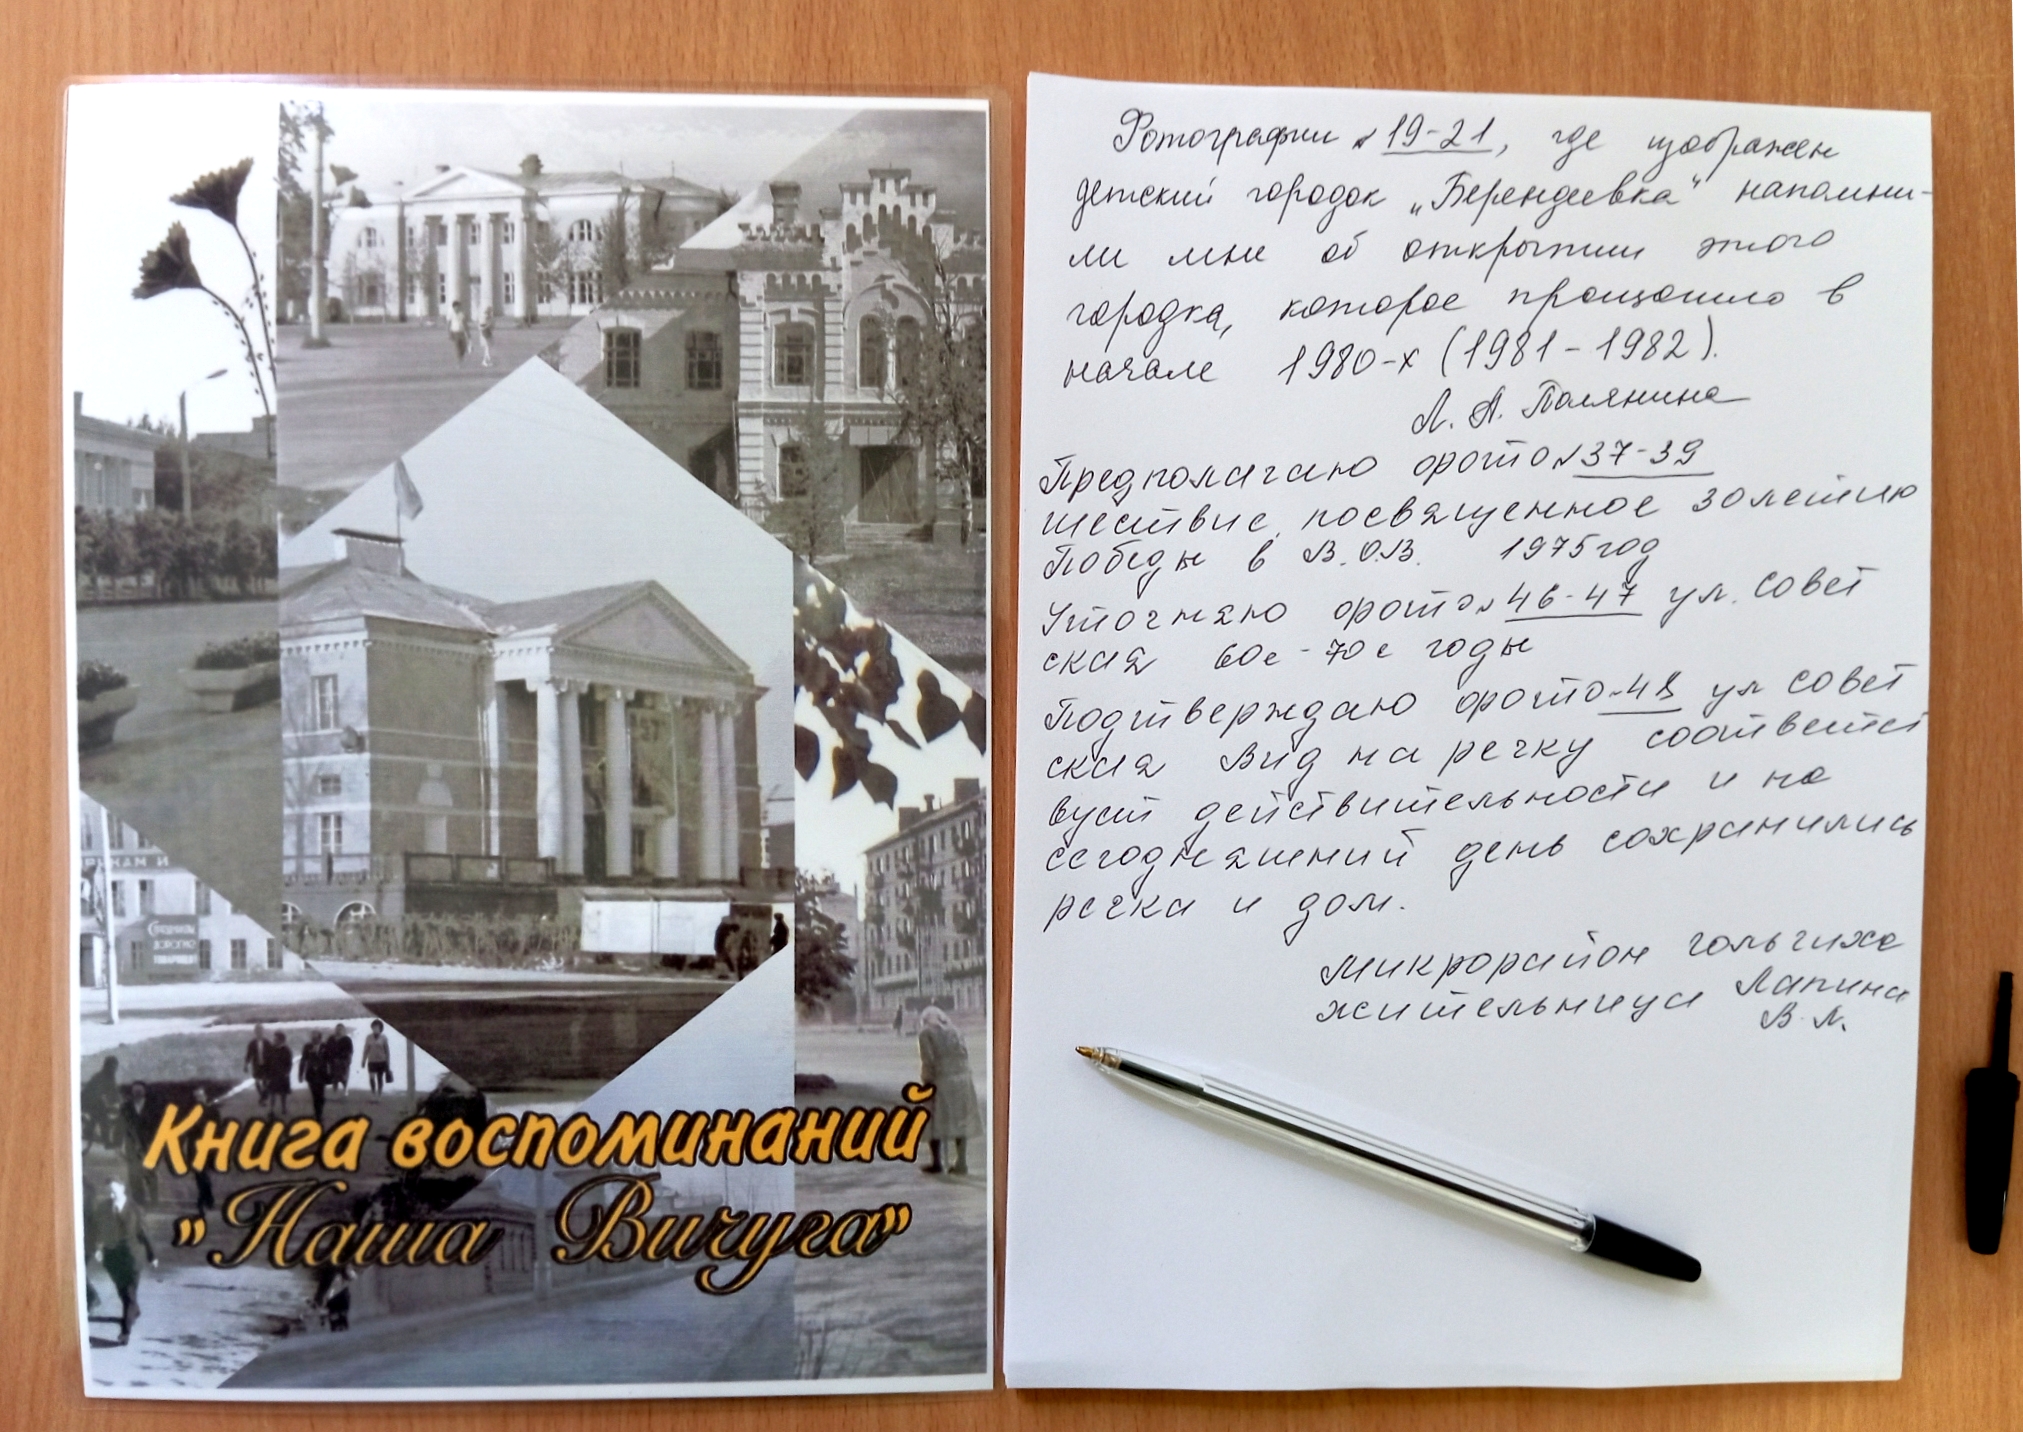 РИКАМ И
СТРОИКАМ
ДОРОГУ
57
Книга воспоминаний
"Наша Вичуга"
Фотографии № 19-21, где изображен
детский городок „Берендеевка" напомни-
ли мне об открытии этого
городка, которое произошло в
начале 1980-х (1981-1982).
Л. А. Полянина
Предполагаю фото № 37-39
шествие посвященное 30 летию
Победы в В.О.В. 1975 год
Уточняю фото № 46-47 ул. Совет
ская 60е-70е годы
Подтверждаю фото № 48 ул Совет
ская Вид на речку соответст
вует действительности и на
сегодняшний день сохранились
речка и дом.
Микрорайон Гольчиха
жительница Лапина
В. Л.